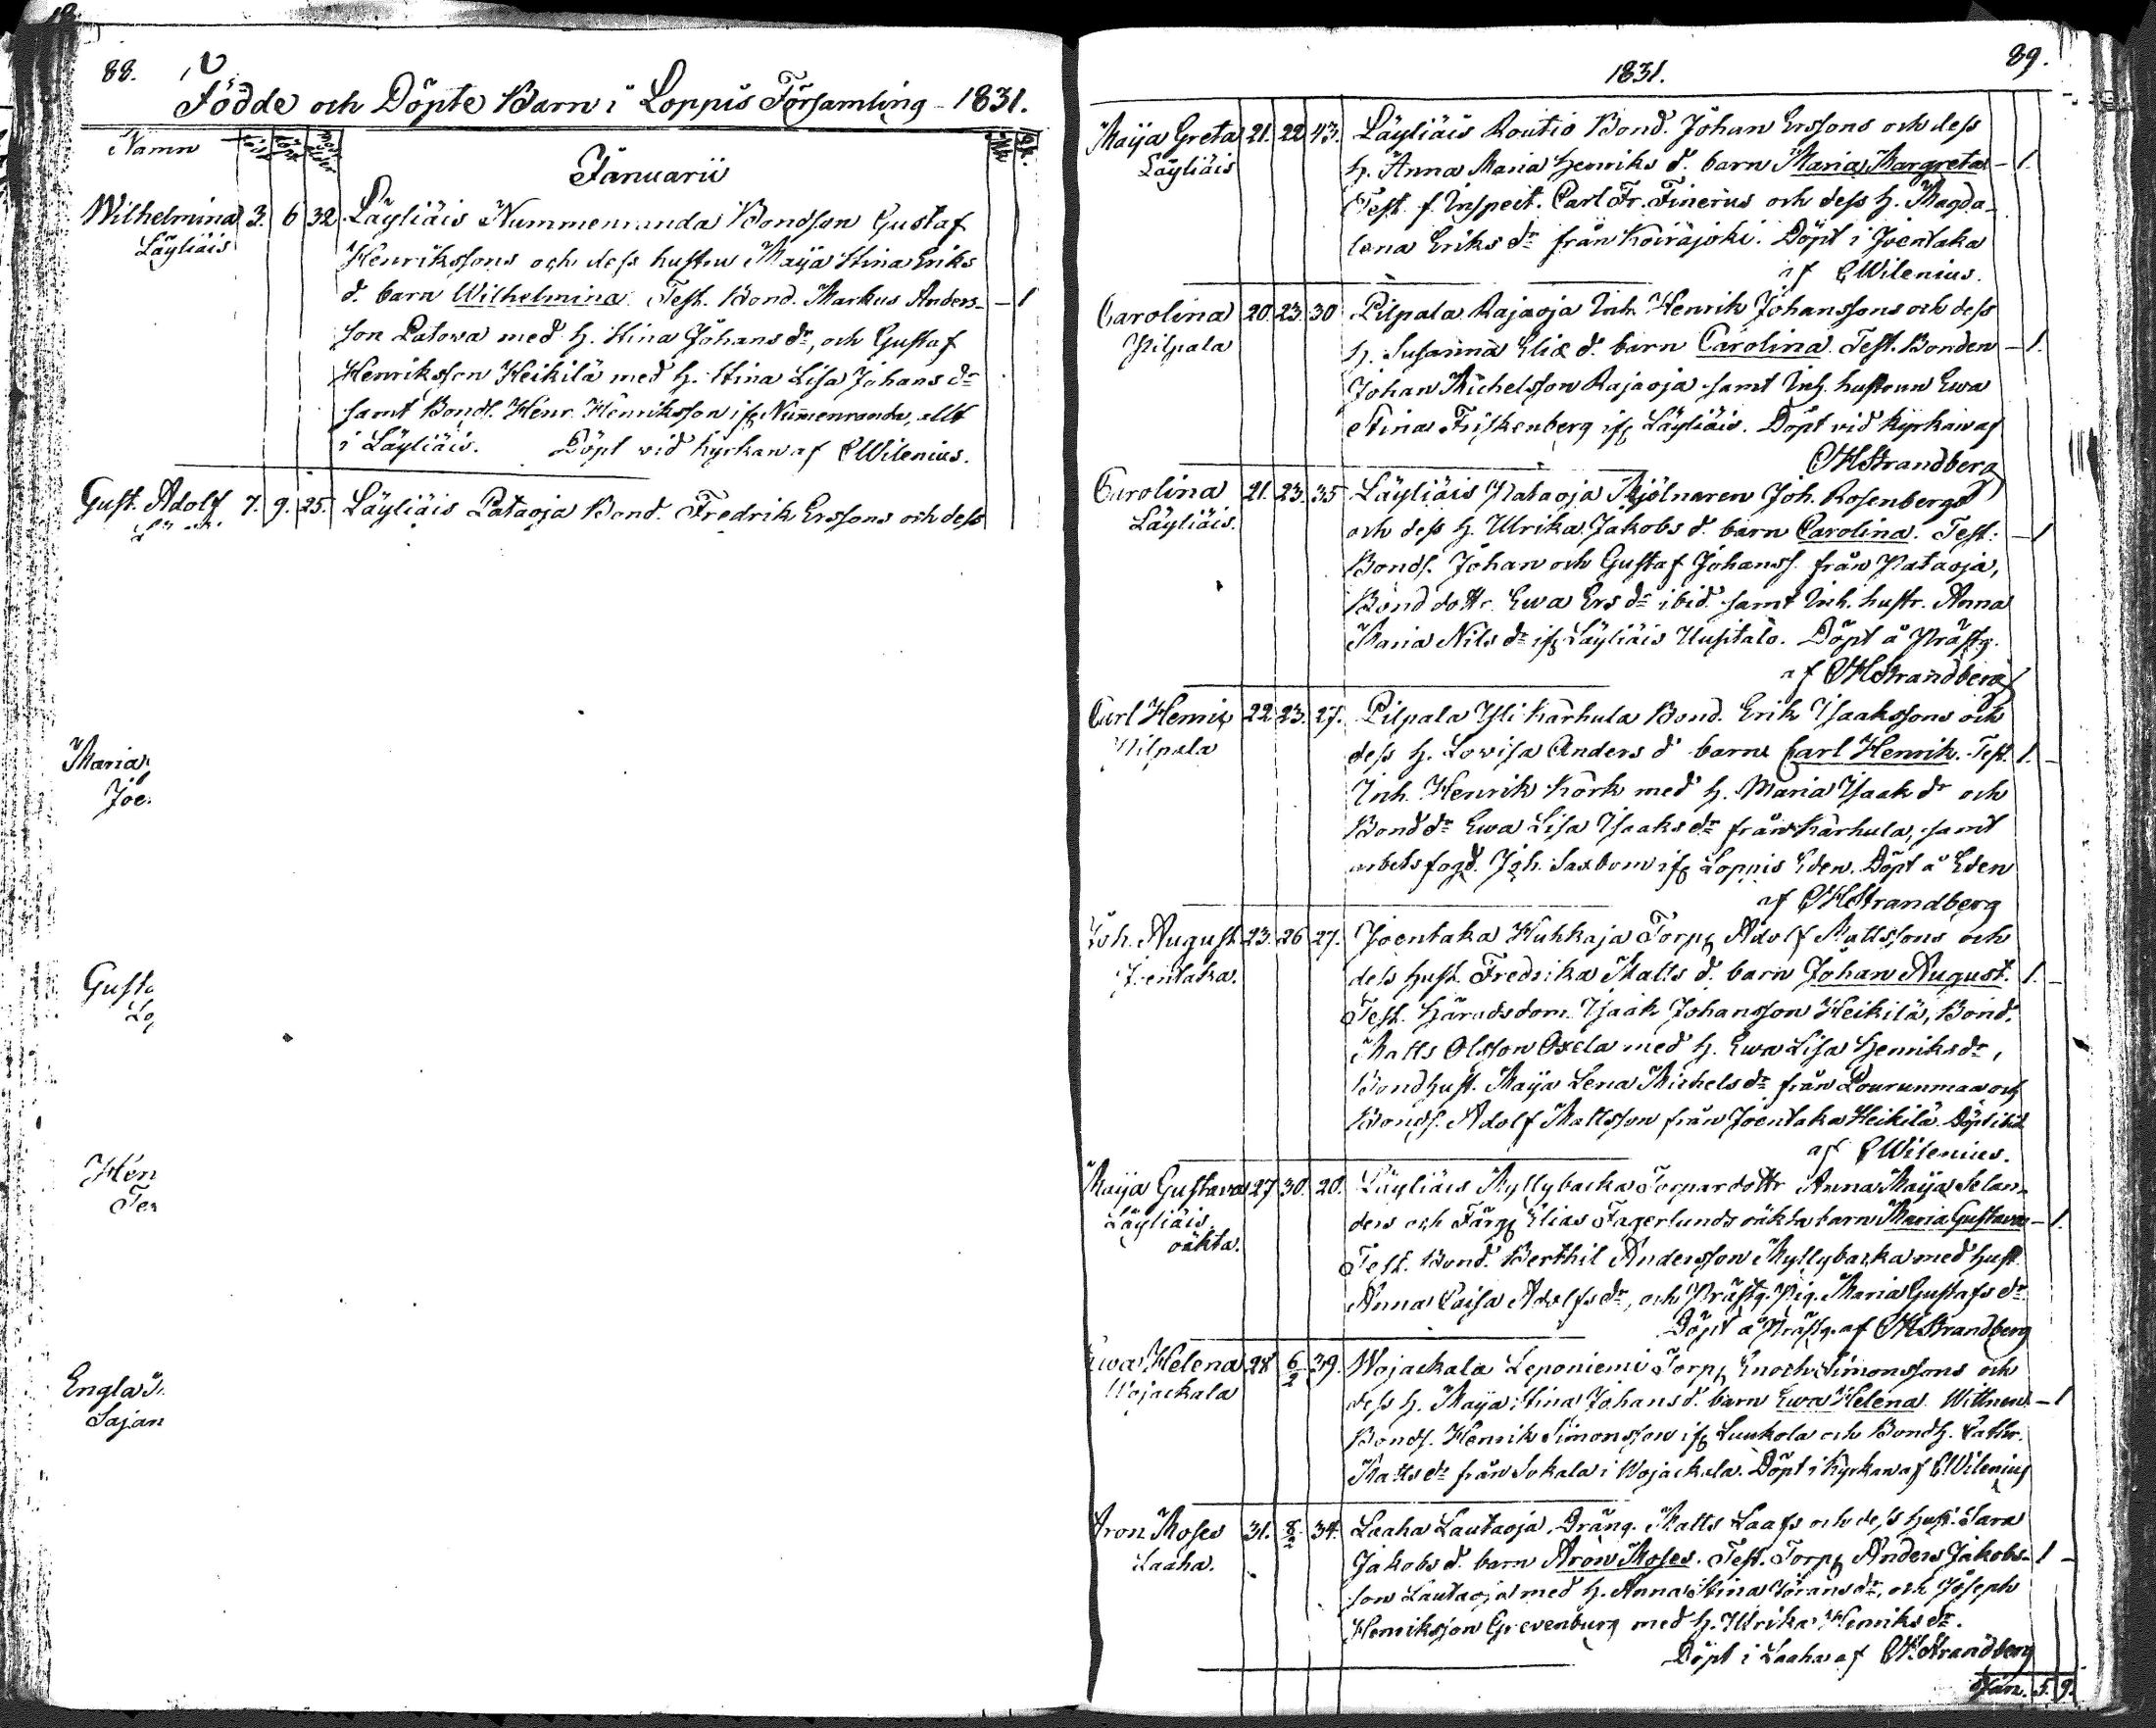 88.
Födde och Döpte Barn i Loppis Församling 1831.
Namn född döpt
Januarii
Wilhelmina 3. 6 32 Läyliäis Nummenranda Bondson Gustaf
Läyliäis
Henrikssons och dess hustru Maija Stina Eriks
d. barn Wilhelmina. Test. Bond. Markus Anders- – 1
son Patowa med h. Stina Johans dr, och Gustaf
Henriksson Heikilä med h. Stina Lisa Johans dr
samt Bonds. Henr. Henriksson ifr Nummenranda, allt
i Läyliäis. Döpt vid Kyrkan af CWilenius.
Gust. Adolf 7. 9. 25. Läyliäis Pataoja Bond. Fredrik Erssons och dess
Maria
Joe
Gust
Lo
Hen
Engla
Sajan
1831. 89.
Maija Greta 21. 22 43. Läyliäis Routio Bond. Johan Erssons och dess
Läyliäis
h. Anna Maria Henriks d. barn Maria Margreta – 1.
Test. f. Inspect. Carl Fr. Finerus och dess h. Magda-
lena Eriks dr från Koiräjoki. Döpt i Joentaka
af CWilenius.
Carolina 20. 23. 30 Pilpala Rajaoja Inh. Henrik Johanssons och dess
Pilpala
h. Susanna Eliæ d. barn Carolina. Test. Bonden – 1.
Johan Michelsson Rajaoja samt Inh. hustrun Ewa
Stina Friskenberg ifr Läyliäis. Döpt vid Kyrkan af
CHStrandberg
Carolina 21. 23. 35 Läyliäis Pataoja Mjölnaren Joh. Rosenbergs
Läyliäis.
och dess h. Ulrika Jakobs d. barn Carolina. Test. – 1
Bonds. Johan och Gustaf Johanss. från Pataoja,
Bond dottr. Ewa Ers dr ibid. samt Inh. hustr. Anna
Maria Nils dr ifr Läyliäis Uusitalo. Döpt å Prästg.
af CHStrandberg
Carl Henric 22 23. 27. Pilpala Yli Karhula Bond. Erik Isaakssons och
Pilpala
dess h. Lovisa Anders d barn Carl Henrik. Test. 1. –
Inh. Henrik Kork med h. Maria Isaak dr och
Bond dr Ewa Lisa Isaaks dr från Karhula, samt
arbetsfogd. Joh. Saxbom ifr Loppis Eden. Döpt å Eden
af CHStrandberg
Joh. August 23. 26 27. Joentaka Kukkaja Torp. Adolf Mattssons och
Joentaka.
dess hust. Fredrika Matts d. barn Johan August. 1. –
Test. Häradsdom. Isaak Johansson Heikilä, Bond.
Matts Olsson Oxela med h. Ewa Lisa Henriks dr,
Bondhust. Maija Lena Michels dr från Pourunmaa och
Bonds. Adolf Mattsson från Joentaka Heikilä. Döpt ibid
af CWilenius.
Maija Gustava 27 30. 20. Läyliäis Myllybacka Torpardottr Anna Maija Selan-
Läyliäis.
oäkta.
ders och Färg. Elias Fagerlunds oäkta barn Maria Gustava – 1.
Test. Bond. Berthil Andersson Myllybacka med hust.
Anna Caisa Adolfs dr, och Prästg. Pig. Maria Gustafs dr.
Döpt å Prästg. af CHStrandberg
Ewa Helena 28 6/2 39. Wojackala Leponiemi Torp. Enoch Simonssons och
Wojackala
dess h. Maija Stina Johans d. barn Ewa Helena. Wittnen – 1
Bonds. Henrik Simonsson ifr Luukola och Bondh. Cathr.
Matts dr från Sokala i Wojackala. Döpt i Kyrkan af CWilenius
Aron Moses 31. 8/2 34. Laaha Lautaoja Dräng. Matts Laa​ss och dess hust. Sara
Laaha.
Jakobs d. barn Aron Moses. Test. Torp. Anders Jakobs- 1 –
son Lautaoja med h. Anna Stina Jörans dr, och Joseph
Henriksson Grevenburg med h. Ulrika Henriks dr.
Döpt i Laaha af CHStrandberg
Jan. 5. 9.